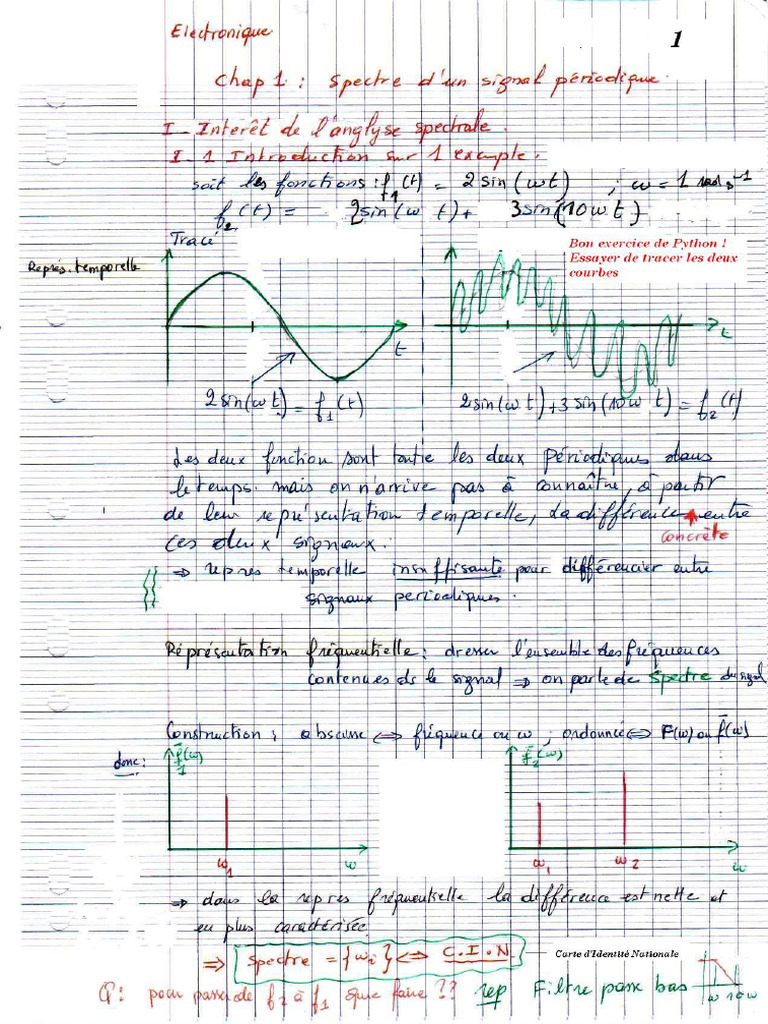 Electronique
1
Chap 1 : Spectre d'un signal périodique.
I - Interêt de l'anglyse spectrale.
I - 1 Introduction sur 1 exemple.
soit les fonctions : f₁(t) = 2 sin (ωt) ; ω = 1 rad s⁻¹
f₂(t) = 2sin(ω t) + 3sin(10ωt)
Tracé
Bon exercice de Python !
Essayer de tracer les deux
courbes
Représ. temporelle
t
t
2 sin(ωt) = f₁(t)
2 sin(ω t) + 3 sin(10ω t) = f₂(t)
Les deux fonction sont toute les deux périodiques dans
le temps. mais on n'arrive pas à connaître, à partir
de leur représentation temporelle, la différence entre
concrète
ces deux signaux.
⇒ repres temporelle insuffisante pour différencier entre
signaux periodiques.
Réprésentation fréquentielle : dresser l'ensemble des fréquences
contenues ds le signal ⇒ on parle de spectre du signal
Construction : abscisse ⇔ fréquence ou ω ; ordonnée ⇔ F(ω) ou f̄(ω)
donc :
f̄₁(ω)
f̄₂(ω)
ω₁
ω
ω₁
ω₂
ω
⇒ dans la repres fréquentielle la différence est nette et
en plus caractérisée
⇒ spectre = {ωᵢ} ⇔ C.I.N
Carte d'Identité Nationale
Q : pour passer de f₂ à f₁ que faire ?? rep Filtre passe bas
ω 10ω